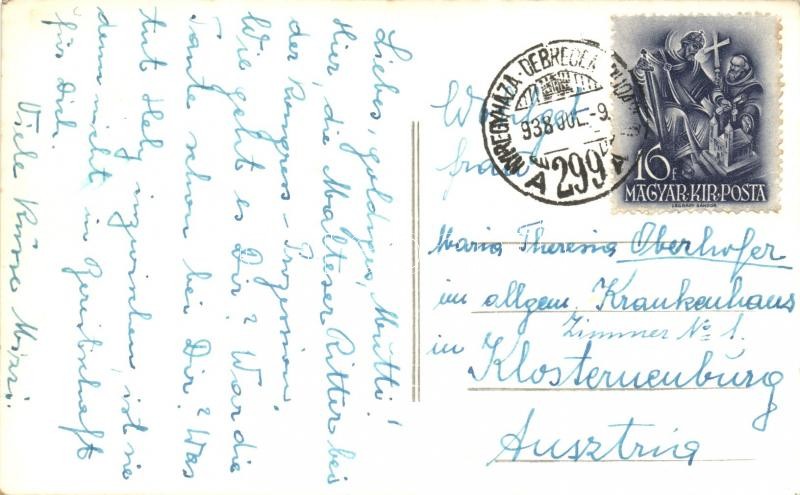 Liebes, goldiges, Mutti!
Hier, die Malteser Ritter bei
der Kongress-Prozession.
Wie geht es Dir? War die
Tante schon bei Dir? Was
tut Hely inzwischen, ist sie
denn nicht in Bereitschaft
für Dich.
Viele Küsse Mizzi.
NYIREGYHAZA-DEBRECEN-BUDAP
938 JUL.-9.
A 299 A
16f
MAGYAR·KIR·POSTA
LEGRADY SANDOR
Maria Theresia Oberhofer
im allgem. Krankenhaus
Zimmer No 1.
in Klosterneuburg
Ausztria